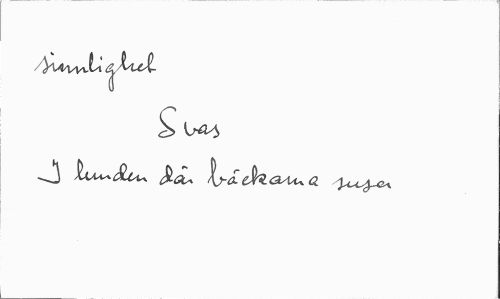 sinnlighet
Svas
I lunden där bäckarna susa